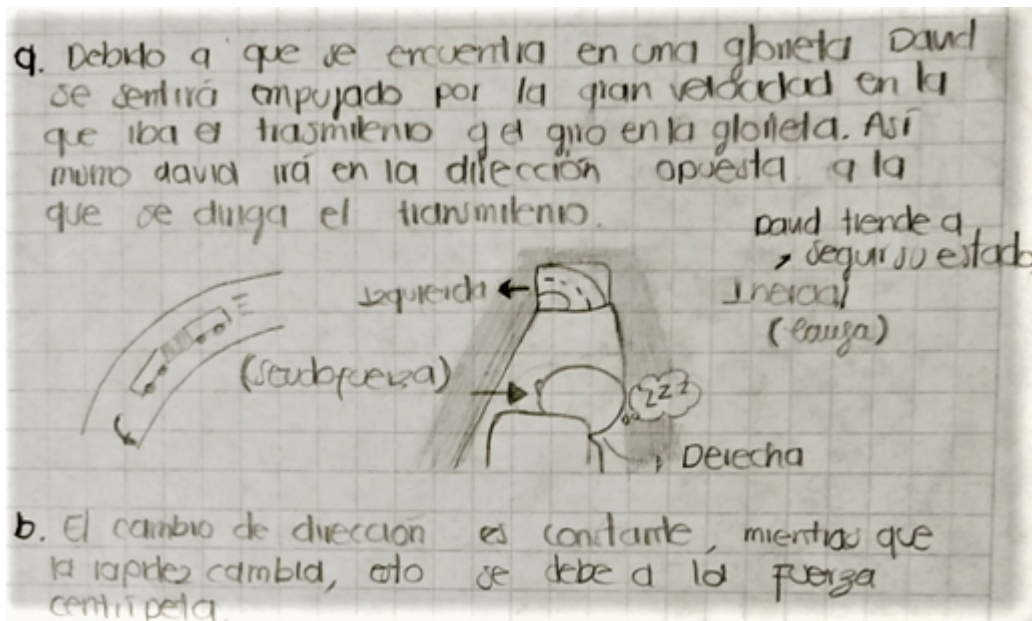 a. Debido a que se encuentra en una glorieta David
se sentirá empujado por la gran velocidad en la
que iba el trasmilenio y el giro en la glorieta. Así
mismo david irá en la dirección opuesta a la
que se dirija el transmilenio.
David tiende a
seguir su estado
Izquierda
Inercial
(causa)
(Seudofuerza)
zzz
Derecha
b. El cambio de dirección es constante, mientras que
la rapidez cambia, esto se debe a la fuerza
centripeta.